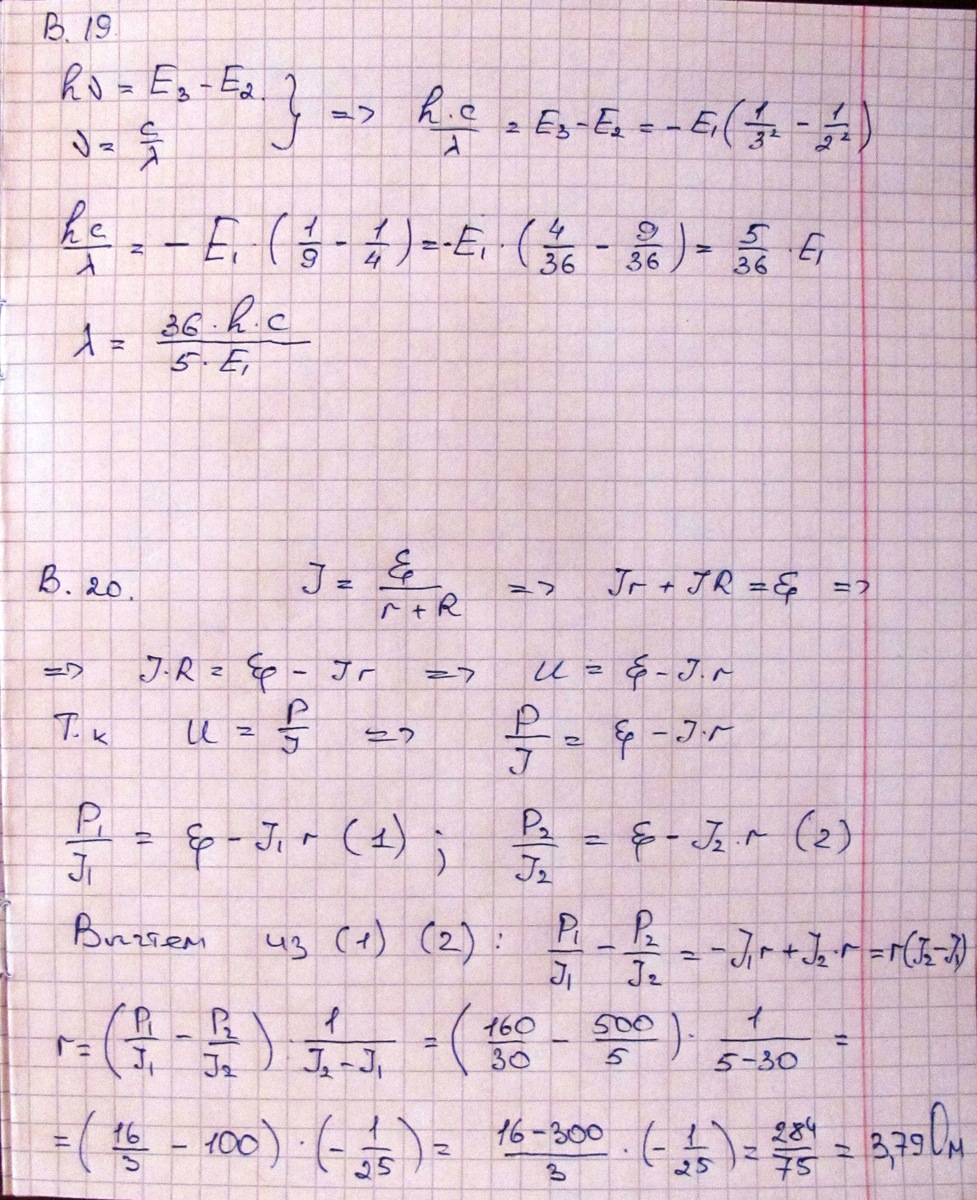 В. 19
hν = E₃ - E₂. } => h·c/λ = E₃ - E₂ = - E₁(1/3² - 1/2²)
ν = c/λ
hc/λ = - E₁ · (1/9 - 1/4) = -E₁ · (4/36 - 9/36) = 5/36 · E₁
λ = 36·h·c / 5·E₁
В. 20. J = ℰ/(r + R) => Jr + JR = ℰ =>
=> J·R = ℰ - Jr => U = ℰ - J·r
Т.к U = P/J => P/J = ℰ - J·r
P₁/J₁ = ℰ - J₁r (1) ; P₂/J₂ = ℰ - J₂·r (2)
Вычтем из (1) (2) : P₁/J₁ - P₂/J₂ = -J₁r + J₂·r = r(J₂-J₁)
r = (P₁/J₁ - P₂/J₂) · 1/(J₂ - J₁) = (160/30 - 500/5) · 1/(5-30) =
= (16/3 - 100) · (-1/25) = (16-300)/3 · (-1/25) = 284/75 = 3,79 Ом